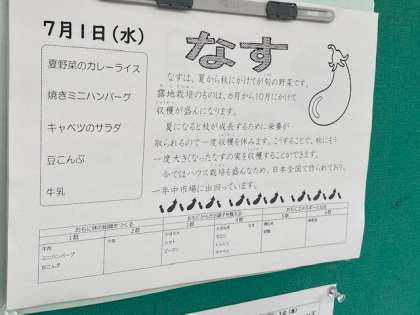 7月1日(水)
夏野菜のカレーライス
焼きミニハンバーグ
キャベツのサラダ
豆こんぶ
牛乳
なす
なすは、夏から秋にかけてが旬の野菜です。
露地栽培のものは、6月から10月にかけて
収穫が盛んになります。
夏になると枝が成長するために栄養が
取られるので一度収穫を休みます。こうすることで、秋にもう
一度大きくなったなすの実を収穫することができます。
今ではハウス栽培も盛んなため、日本全国で作られており、
一年中市場に出回っています。
おもに体の組織をつくる
1群
2群
牛肉
ミニハンバーグ
豆こんぶ
牛乳
3群
4群
かぼちゃ
トマト
ピーマン
なす
5群
6群